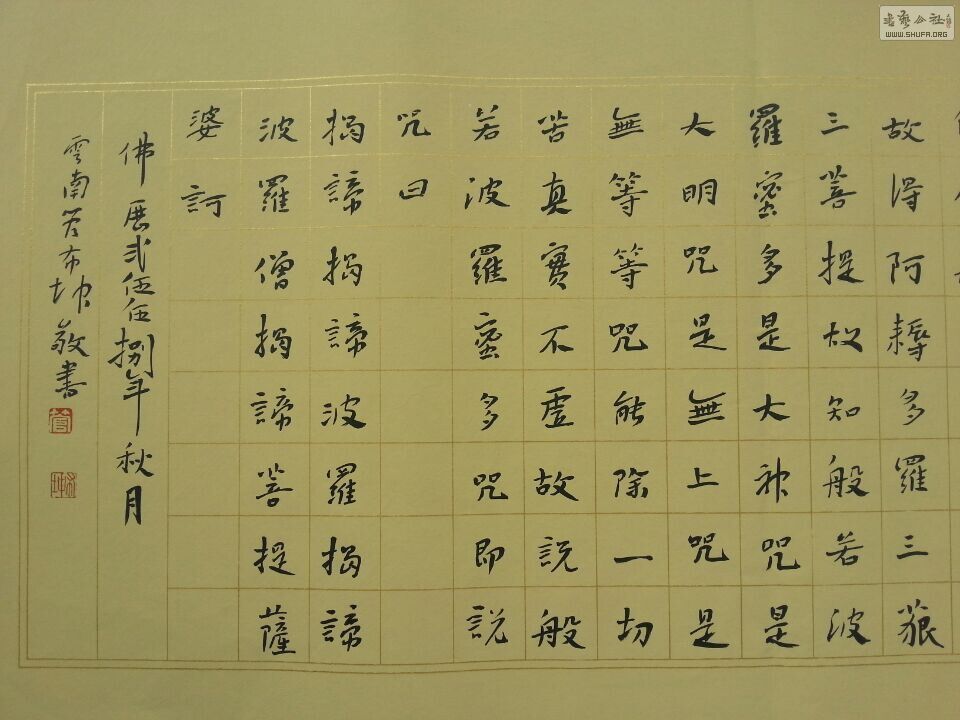 故得阿耨多羅三藐
三菩提故知般若波
羅蜜多是大神咒是
大明咒是無上咒是
無等等咒能除一切
苦真實不虛故說般
若波羅蜜多咒即說
咒曰
揭諦揭諦波羅揭諦
波羅僧揭諦菩提薩
婆訶
佛曆貳伍伍捌年秋月
雲南管布坤敬書
書藝公社
WWW.SHUFA.ORG